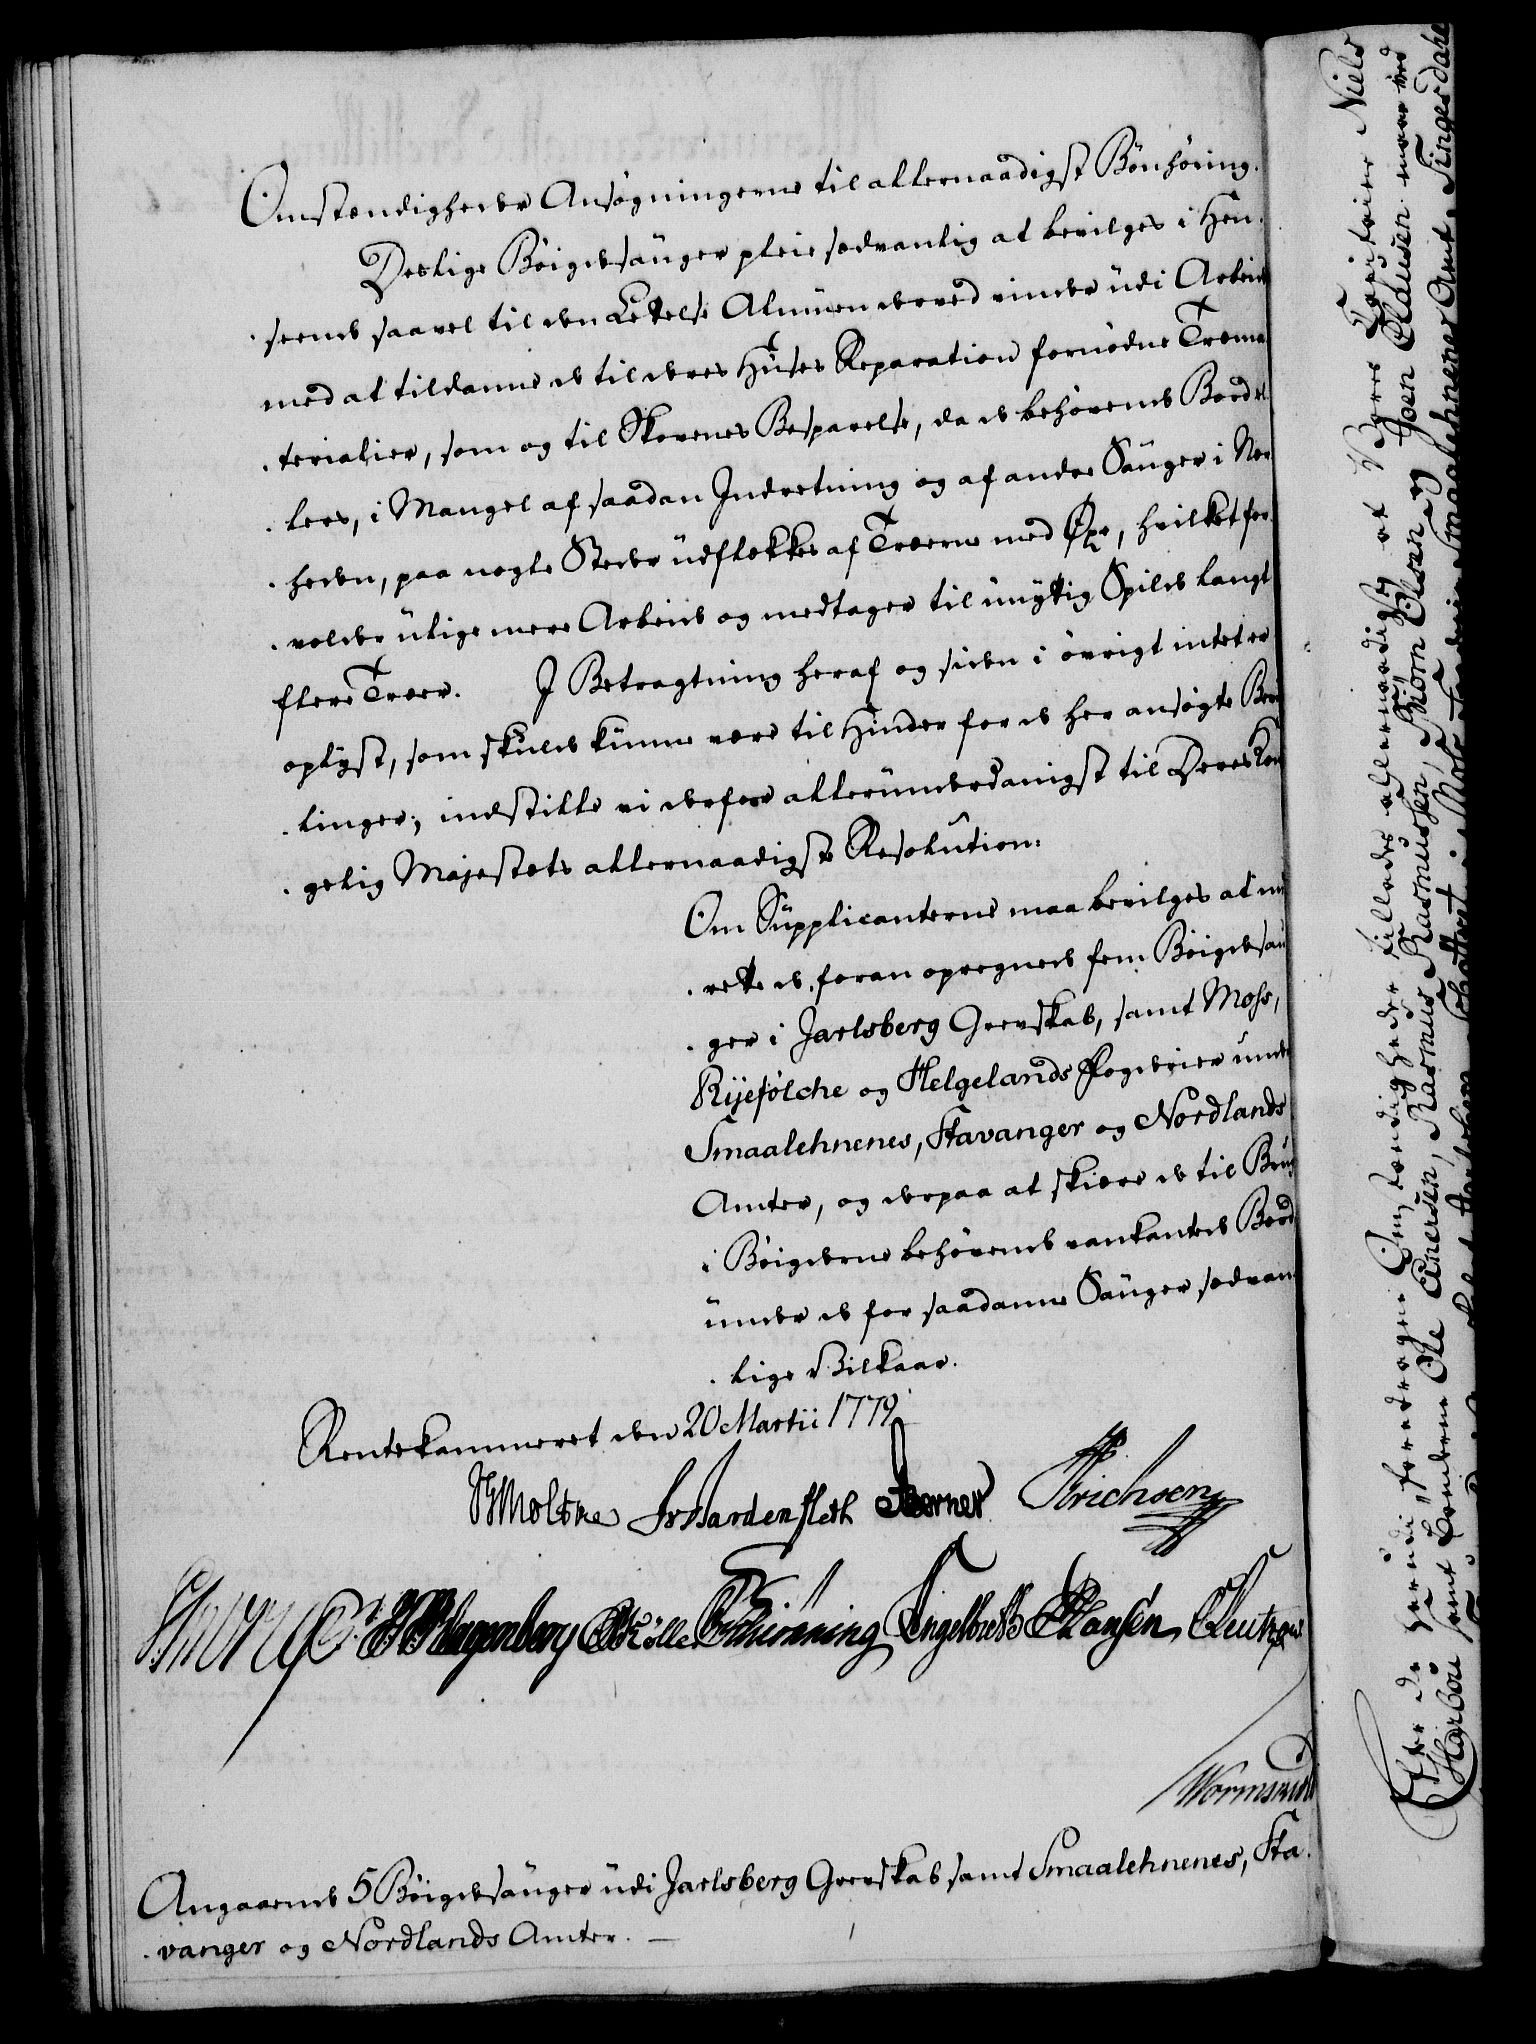 Omstændigheder Ansøgningerne til allernaadigst Bønhøring.
Deslige Bøigdesauger pleie sædvanlig at bevilges i Hen-
-seende saavel til den Lettelse Almuen derved vinder udi Arbeid
med at tildanne de til deres Huses Reparation fornødne Træma-
-terialier, som og til Skovenes Besparelse, da de behøvende Bord el-
-lers, i Mangel af saadan Indretning og af andre Sauger i Nær-
-heden, paa nogle Steder udflækkes af Træerne med Øxe, hvilket for-
-volder ulige mere Arbeide og medtager til unyttig Spilde langt
flere Træer. I Betragtning heraf og siden i øvrigt intet er
oplyst, som skulde kunne være til Hinder for de her ansøgte Bevil-
-linger; indstille vi derfore allerunderdanigst til Deres Kon-
-gelig Majestæts allernaadigste Resolution:
Om Supplicanterne maa bevilges at ind-
-rette de foran opregnede fem Bøigdesau-
-ger i Jarlsberg Grevskab, samt Moss,
Ryefølche og Helgelands Fogderier under
Smaalehnenes, Stavanger og Nordlands
Amter, og derpaa at skiære de til Brug
i Bøigderne behøvende vankantede Bord
under de for saadanne Sauger sædvan-
-lige Vilkaar.
Rentekammeret den 20 Martii 1779
JGMoltke FrBardenfleth Berner Erichsen
Klagenberg Rølle Schiønning Engelbreth Hansen Leutzow
Wormskiold
Angaaende 5 Bøigdesauger udi Jarlsberg Grevskab samt Smaalehnenes, Sta-
-vanger og Nordlands Amter. —
Efter de herudi foredragne Omstændigheder tillades allernaadigst at Vores Justitier Niels
Harboe samt Bønderne Ole Enersen, Rasmus Rasmussen, Biørn Olsen og Joen Clausen maae ved